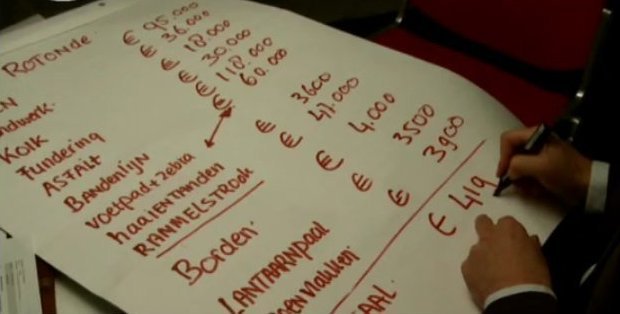 ROTONDE
€ 95.000
€ 36.000
€ 18.000
€ 30.000
€ 118.000
€ 60.000
KOLK
Fundering
ASFALT
Bandenlijn
voetpad + zebra
haaientanden
RAMMELSTROOK
€ 3600
€ 47.000
€ 4.000
€ 3500
€ 3900
Borden
LANTAARNPAAL
€ 419